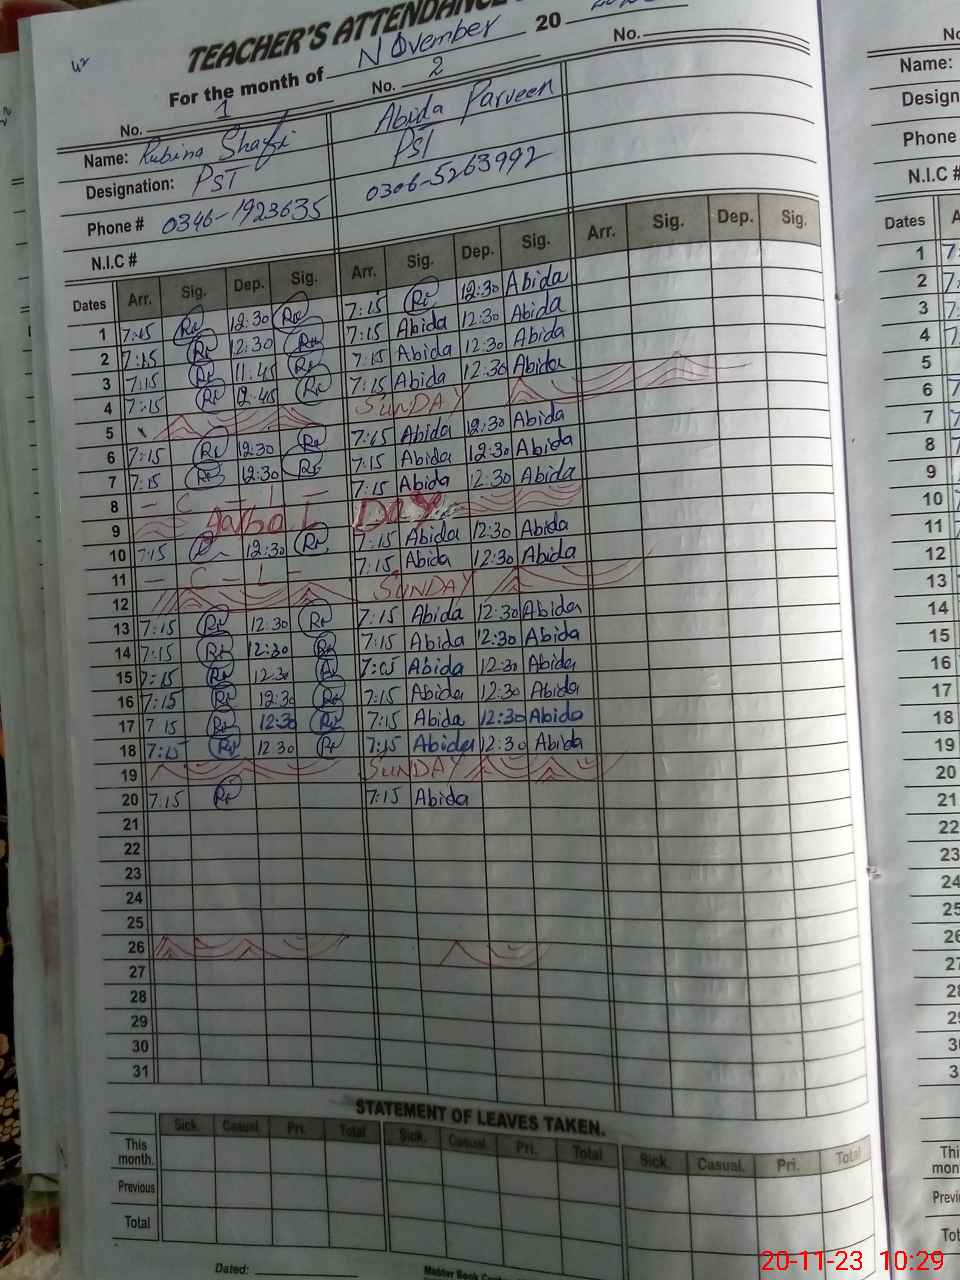 TEACHER'S ATTENDANCE
For the month of November 20
No. 1 No. 2 No.
Name: Rubina Shafi Abida Parveen
Designation: PST PST
Phone # 0346-1923635 0306-5263992
N.I.C #
Dates Arr. Sig. Dep. Sig. Arr. Sig. Dep. Sig. Arr. Sig. Dep. Sig.
1 7:15 12:30 7:15 12:30 Abida
2 7:15 12:30 7:15 Abida 12:30 Abida
3 7:15 11:45 7:15 Abida 12:30 Abida
4 7:15 12:45 7:15 Abida 12:30 Abida
5 SUNDAY
6 7:15 12:30 7:15 Abida 12:30 Abida
7 7:15 12:30 7:15 Abida 12:30 Abida
8 - C - L - 7:15 Abida 12:30 Abida
9 Day
10 7:15 12:30 7:15 Abida 12:30 Abida
11 - C - L - 7:15 Abida 12:30 Abida
12 SUNDAY
13 7:15 12:30 7:15 Abida 12:30 Abida
14 7:15 12:30 7:15 Abida 12:30 Abida
15 7:15 12:30 7:05 Abida 12:30 Abida
16 7:15 12:30 7:15 Abida 12:30 Abida
17 7 15 12:30 7:15 Abida 12:30 Abida
18 7:15 12 30 7:15 Abida 12:30 Abida
19 SUNDAY
20 7:15 7:15 Abida
21
22
23
24
25
26
27
28
29
30
31
STATEMENT OF LEAVES TAKEN.
Sick. Casual. Pri. Total Sick. Casual. Pri. Total Sick. Casual. Pri. Total
This month.
Previous
Total
Dated:
Master Book
Name:
Design
Phone
N.I.C #
Dates
1
2
3
4
5
6
7
8
9
10
11
12
13
14
15
16
17
18
19
20
21
22
23
24
25
26
27
28
29
20-11-23 10:29